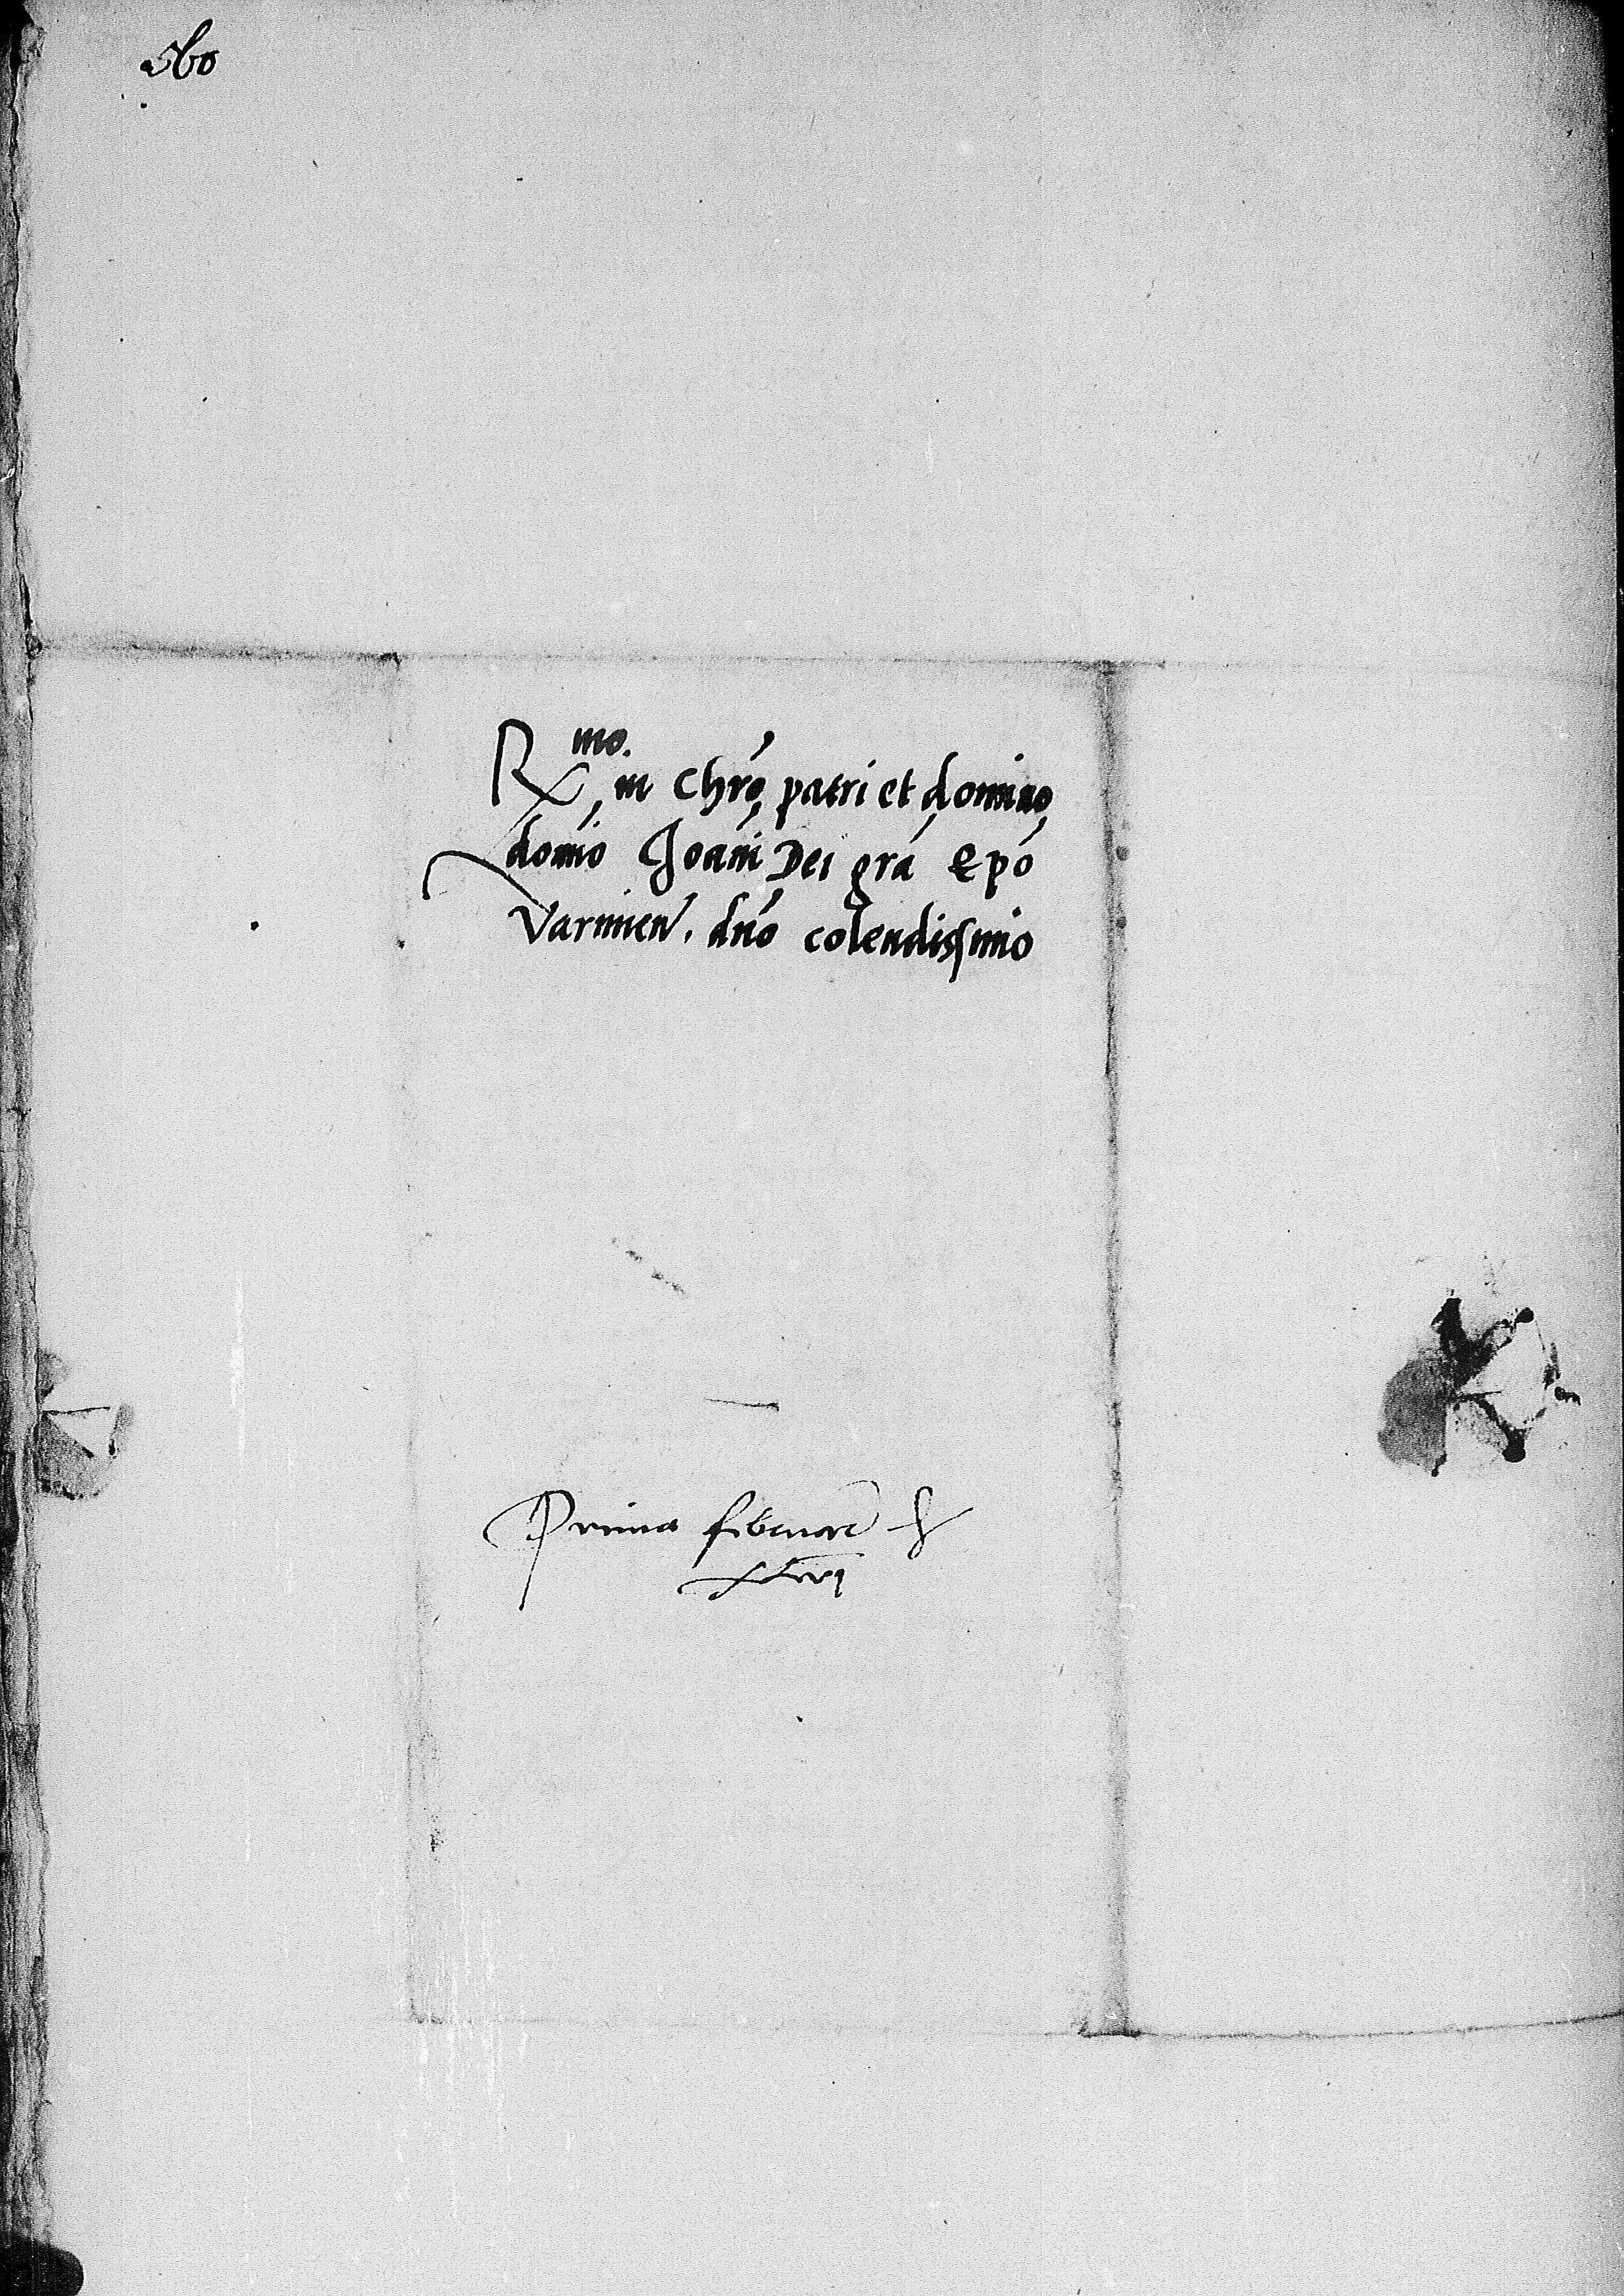 560
Rmo. in Chro patri et domino,
domio Joani Dei gra Epo
Varmien. dno colendissimo
Prima februarii